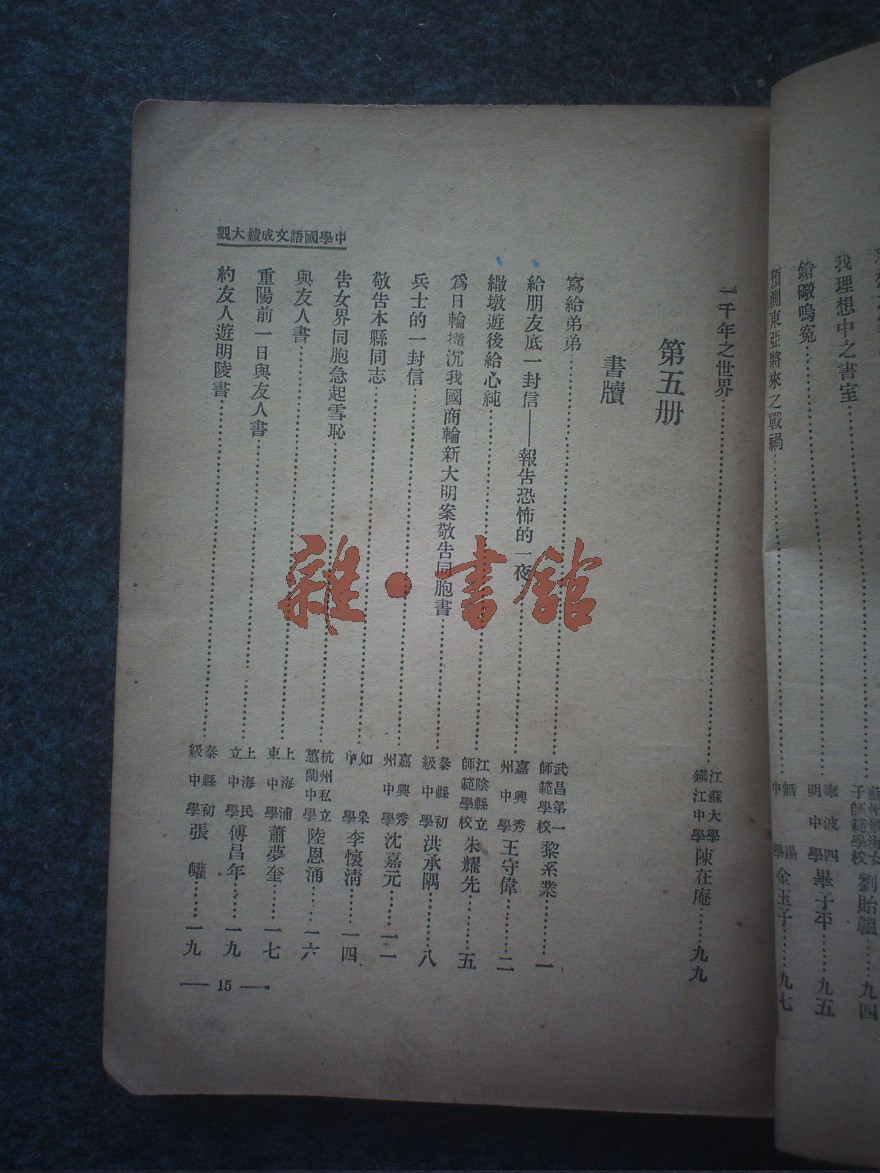 我理想中之書室
蘇州景海女子師範學校 劉貽瓗……九四
鎗礮鳴寃
寧波四明中學 畢子平……九五
預測東亞將來之戰禍
無錫中學 金玉子……九七
一千年之世界……江蘇大學鎮江中學 陳在庵……九九
第五册
書牘
寫給弟弟……武昌第一師範學校 黎系業……一
給朋友底一封信——報告恐怖的一夜……嘉興秀州中學 王守偉……二
繖墩遊後給心純……江陰縣立師範學校 朱耀先……五
爲日輪撞沉我國商輪新大明案敬告同胞書……泰縣初級中學 洪承隅……八
兵士的一封信……嘉興秀州中學 沈嘉元……一一
敬告本縣同志……如皋中學 李懷清……一四
告女界同胞急起雪恥……杭州私立蕙蘭中學 陸恩涌……一六
與友人書……上海浦東中學 蕭夢奎……一七
重陽前一日與友人書……上海民立中學 傅昌年……一九
約友人遊明陵書……泰縣初級中學 張㠇……一九
中學國語文成績大觀
— 15 —
雜·書館